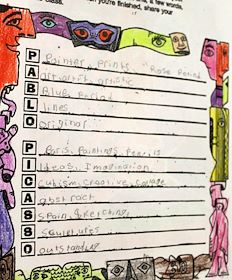 you're finished, share your
P Painter, Prints "Rose Period
A artwork, artistic
B Blue, Period
L lines
O Original
P Paris, Paintings, Pencils
I Ideas, Imagination
C cubism, Creative, collage
A abstract
S Spain, sketching
S Sculptures
O outstanding